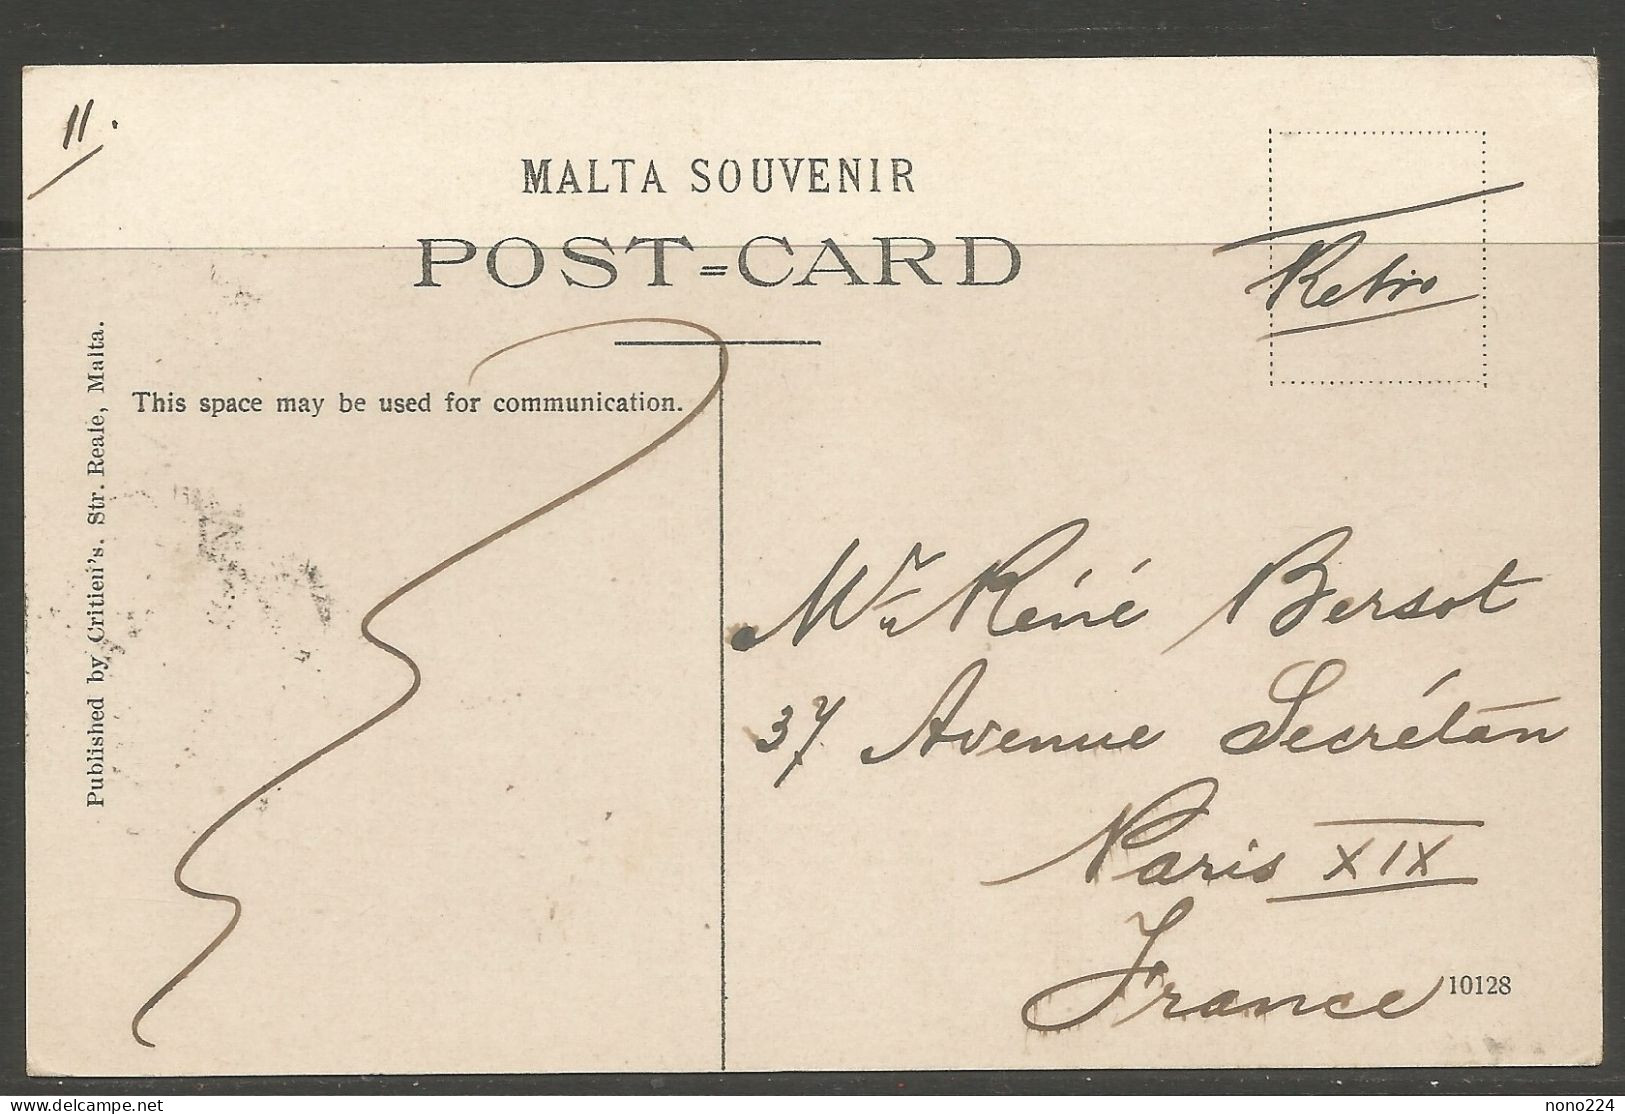 11.
MALTA SOUVENIR
POST=CARD
Retro
This space may be used for communication.
Published by Critien's. Str. Reale, Malta.
Mr Réné Bersot
37 Avenue Secrétan
Paris XIX
France
10128
delcampe.net
nono224